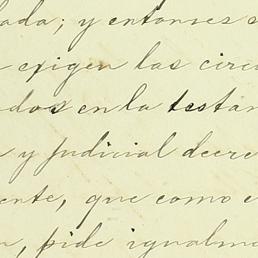 lada; y entonces s
exigen las circ
ados en la testam
y judicial decre
ente, que como e
n, pide igualme